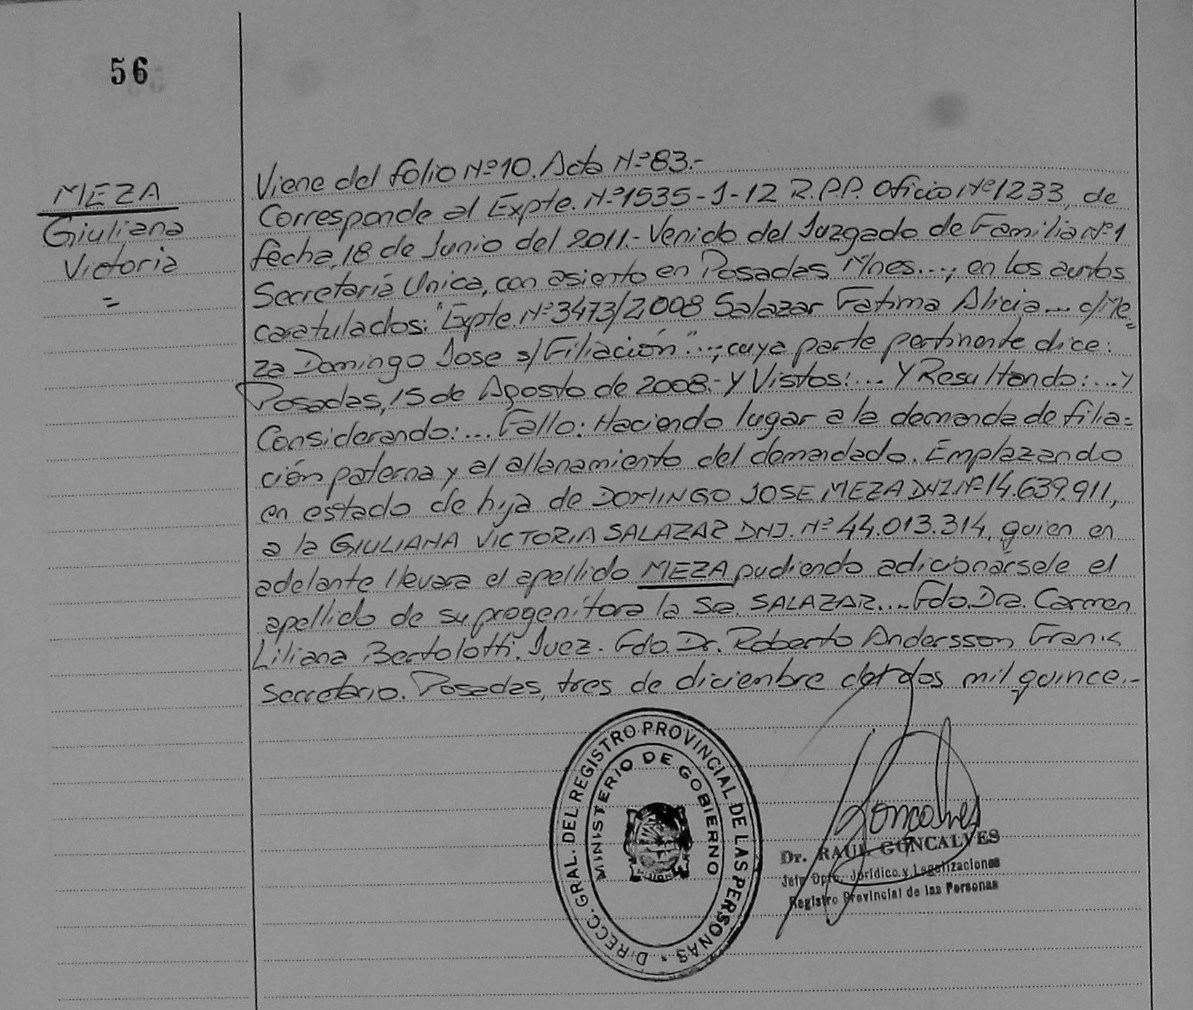 56
MEZA
Giuliana
Victoria
=
Viene del folio Nº10. Acta Nº83.-
Corresponde al Expte. Nº1535-1-12 R.P.P. Oficio Nº1233, de
fecha, 18 de Junio del 2011.- Venido del Juzgado de Familia Nº1
Secretaria Unica, con asiento en Posadas Mnes...; en los autos
caratulados: "Expte. Nº3473/2008 Salazar Fatima Alicia... c/Me=
za Domingo Jose s/Filiación"...; cuya parte pertinente dice:
Posadas, 15 de Agosto de 2008.- Y Vistos:... Y Resultando:... y
Considerando:... Fallo: Haciendo lugar a la demanda de filia=
ción paterna y al allanamiento del demandado. Emplazando
en estado de hija de DOMINGO JOSE MEZA DNI Nº 14.639.911,
a la GIULIANA VICTORIA SALAZAR DNI. Nº 44.013.314, quien en
adelante llevara el apellido MEZA pudiendo adicionarsele el
apellido de su progenitora la Sra SALAZAR... Fdo. Dra. Carmen
Liliana Bertolotti. Juez. Fdo. Dr. Roberto Andersson Frank
Secretario. Posadas, tres de diciembre del dos mil quince.-
DIRECC. GRAL. DEL REGISTRO PROVINCIAL DE LAS PERSONAS
MINISTERIO DE GOBIERNO
Goncalves
Dr. RAUL GONCALVES
Jefe Dpto. Jurídico y Legalizaciones
Registro Provincial de las Personas